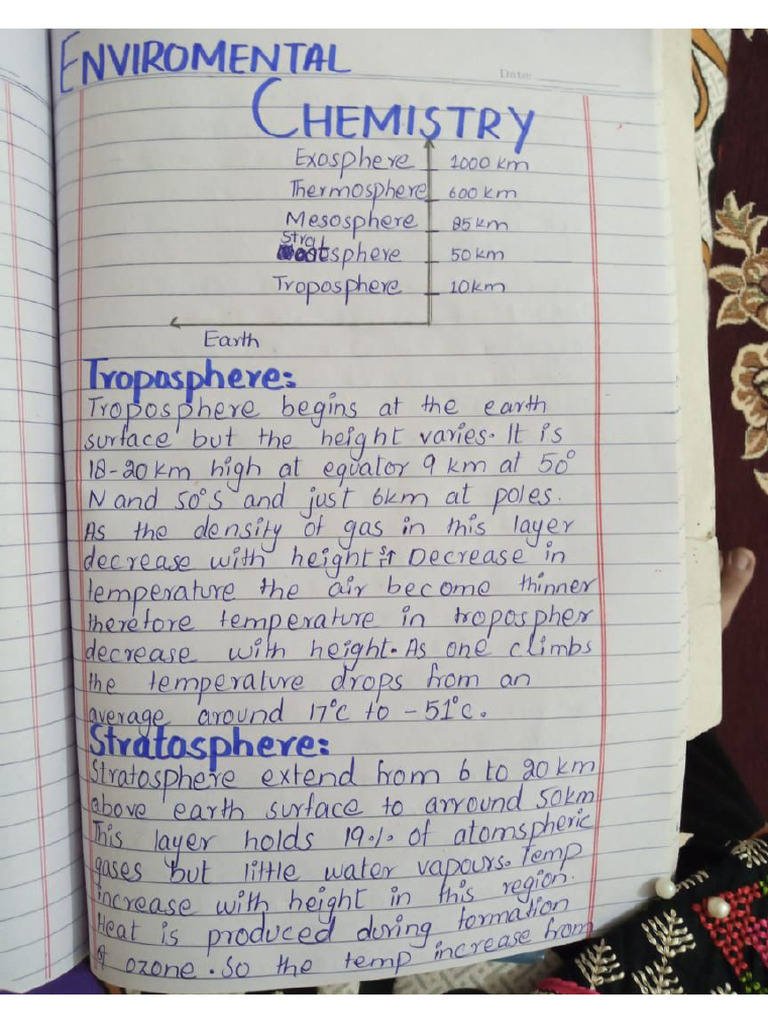 ENVIROMENTAL
Date:
CHEMISTRY
Exosphere 1000 km
Thermosphere 600 km
Mesosphere 85 km
Stratsphere 50 km
Troposphere 10km
Earth
Troposphere:
Troposphere begins at the earth
surface but the height varies. It is
18-20 km high at equator 9 km at 50°
N and 50°S and just 6km at poles.
As the density of gas in this layer
decrease with height Decrease in
temperature the air become thinner
therefore temperature in tropospher
decrease with height. As one climbs
the temperature drops from an
average around 17°C to -51°C.
Stratosphere:
Stratosphere extend from 6 to 20 km
above earth surface to arround 50km
This layer holds 19% of atomspheric
gases but little water vapours. Temp
increase with height in this region.
Heat is produced during formation
of ozone. So the temp increase from